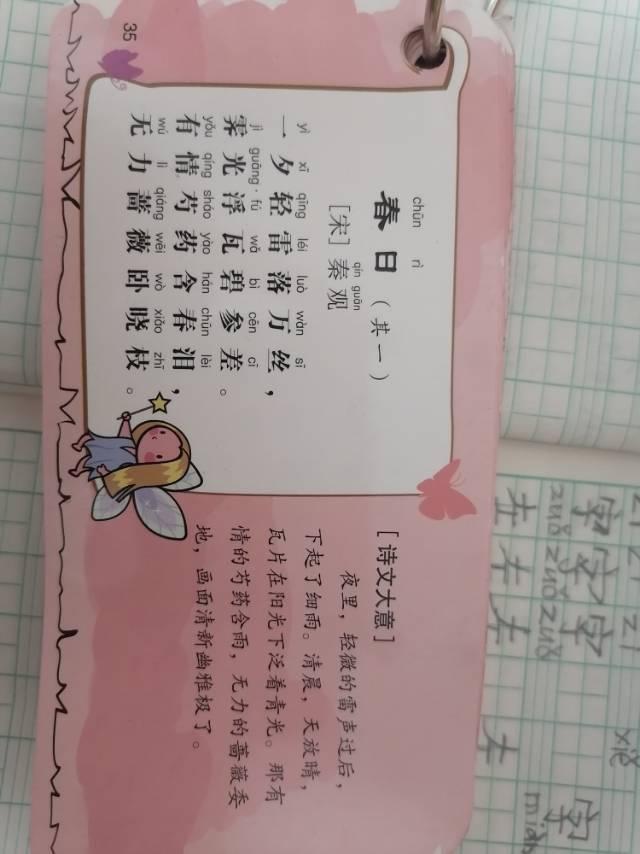 chūn rì
春日（其一）
qín guān
［宋］秦观
yì xī qīng léi luò wàn sī
一夕轻雷落万丝，
jì guāng fú wǎ bì cēn cī
霁光浮瓦碧参差。
yǒu qíng sháo yào hán chūn lèi
有情芍药含春泪，
wú lì qiáng wēi wò xiǎo zhī
无力蔷薇卧晓枝。
35
［诗文大意］
夜里，轻微的雷声过后，
下起了细雨。清晨，天放晴，
瓦片在阳光下泛着青光。那有
情的芍药含雨，无力的蔷薇委
地，画面清新幽雅极了。
zì
字字字
zuǒ zuǒ zuǒ
左左左
左
xiě
字